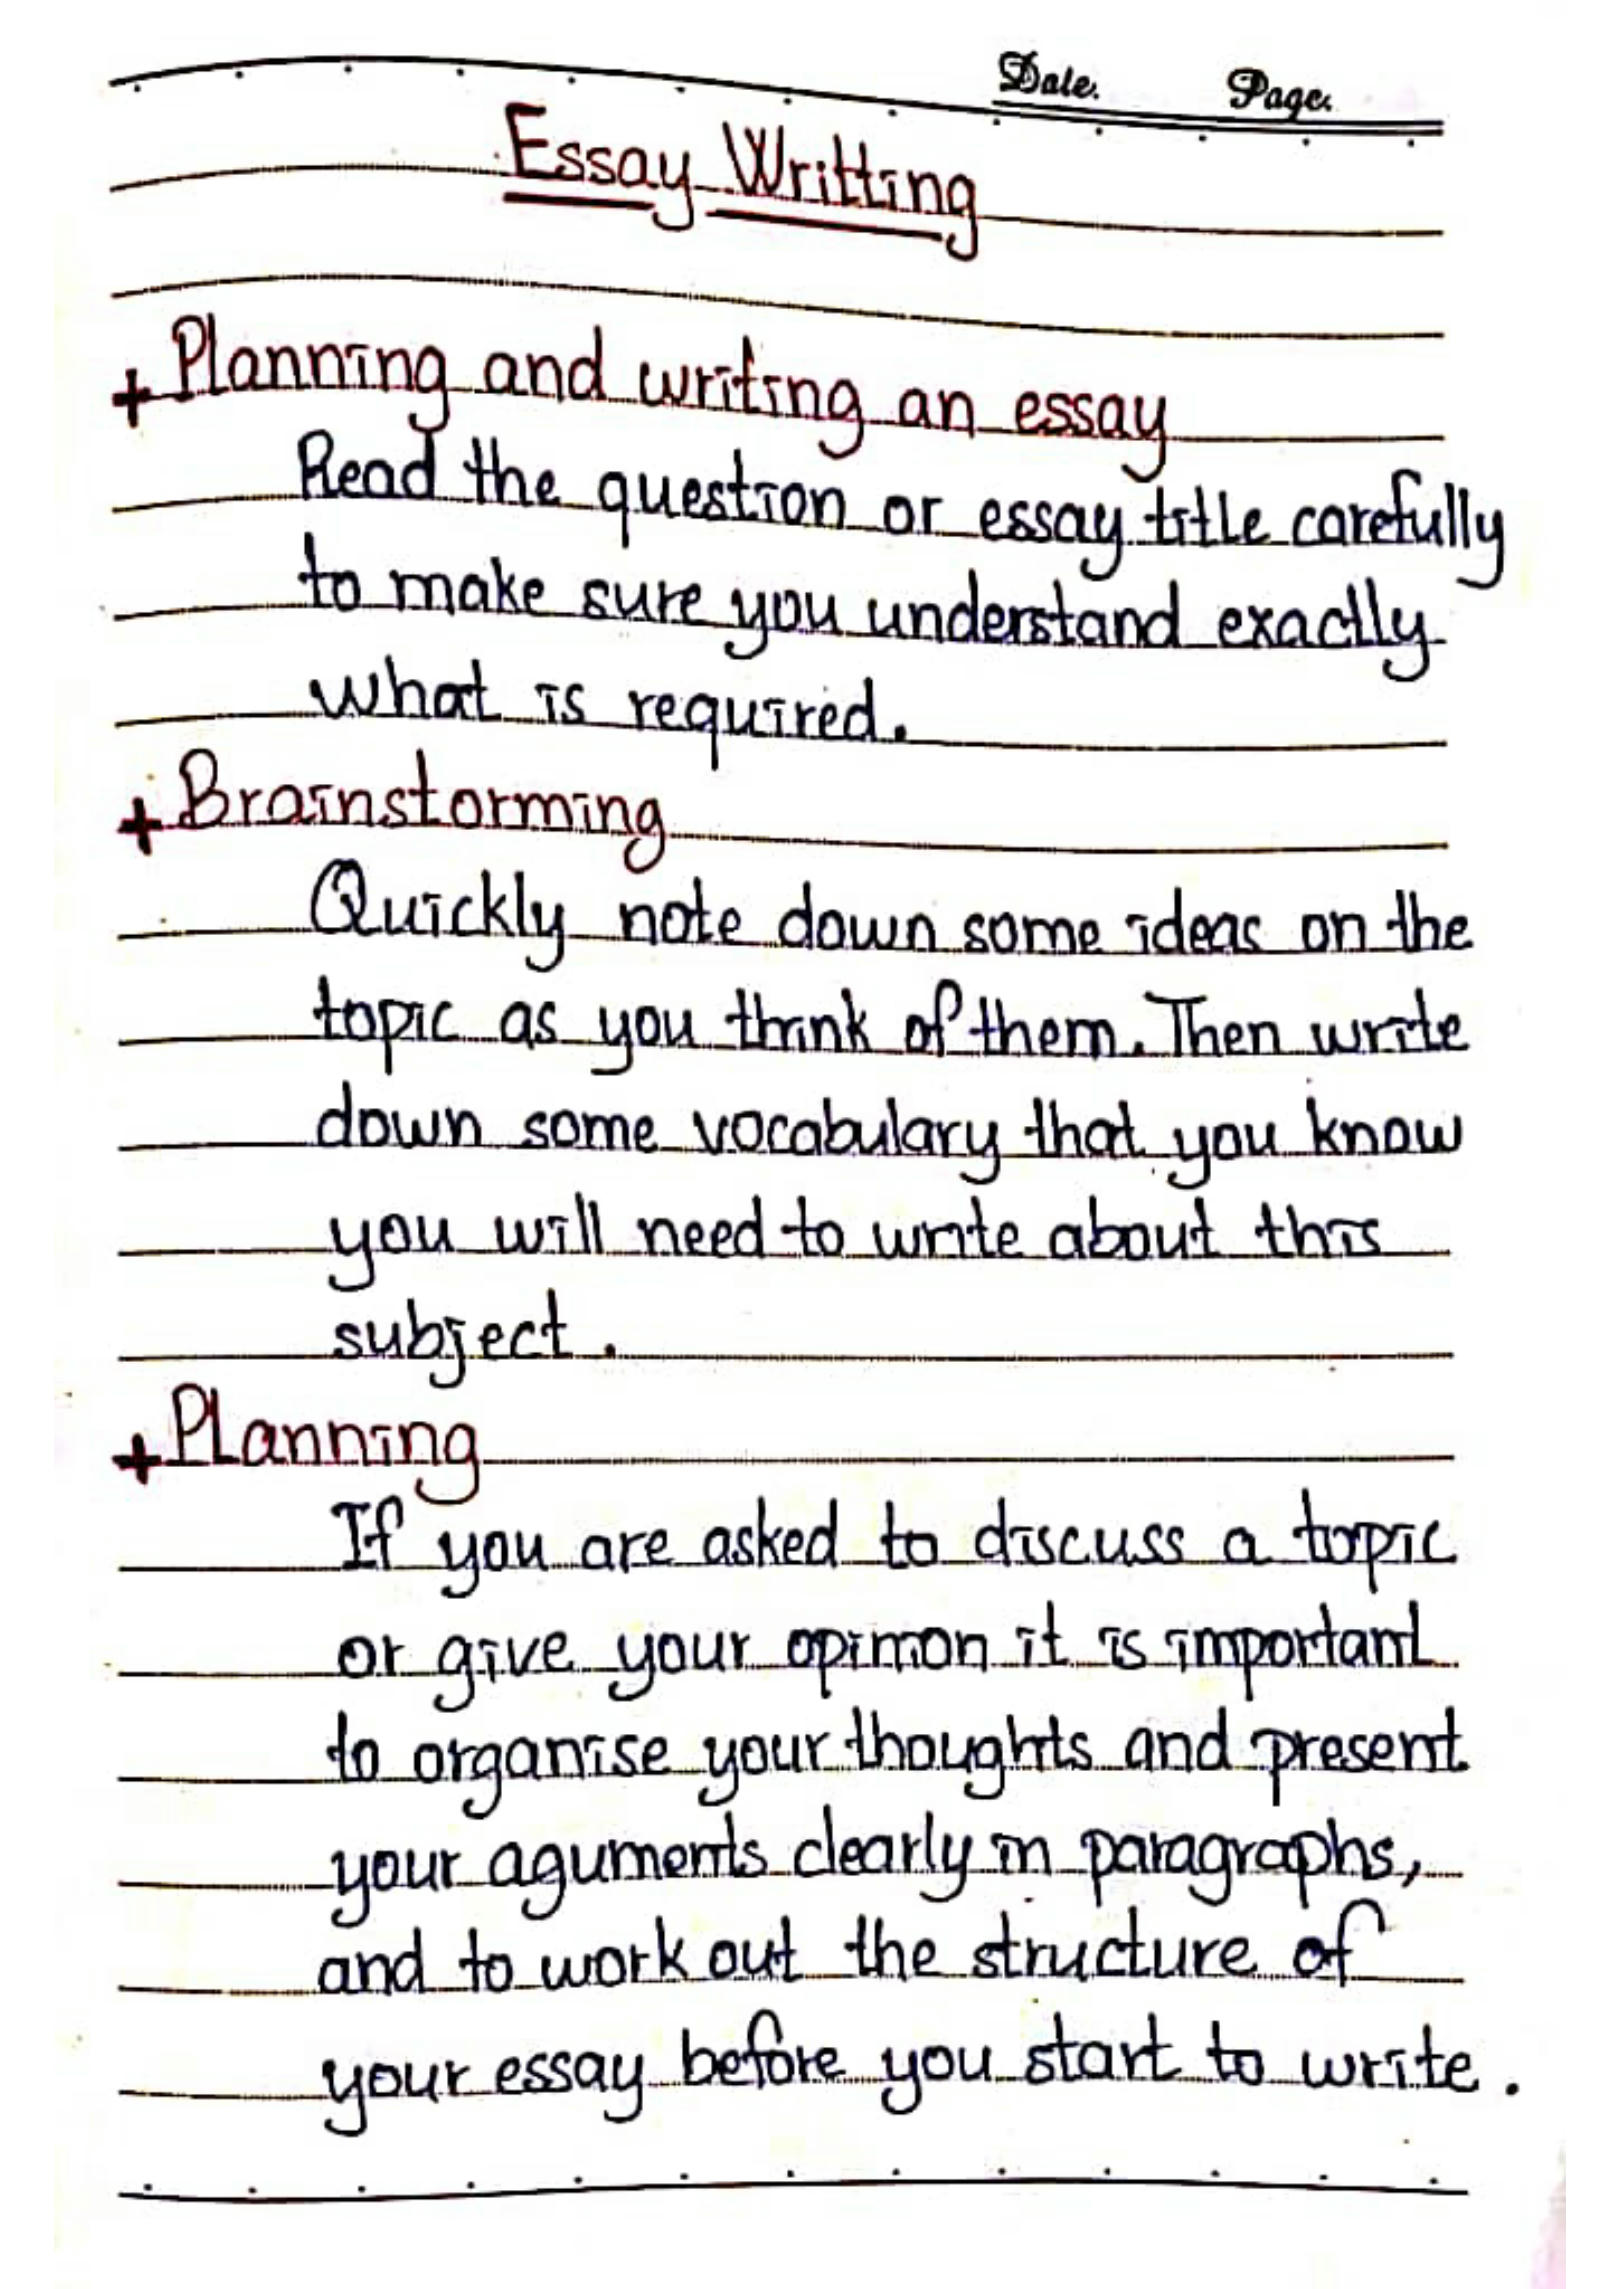 Date. Page.
Essay Writting
+ Planning and writing an essay
Read the question or essay title carefully
to make sure you understand exactly
what is required.
+ Brainstorming
Quickly note down some ideas on the
topic as you think of them. Then write
down some vocabulary that you know
you will need to write about this
subject.
+ Planning
If you are asked to discuss a topic
or give your opinion it is important
to organise your thoughts and present
your aguments clearly in paragraphs,
and to work out the structure of
your essay before you start to write.